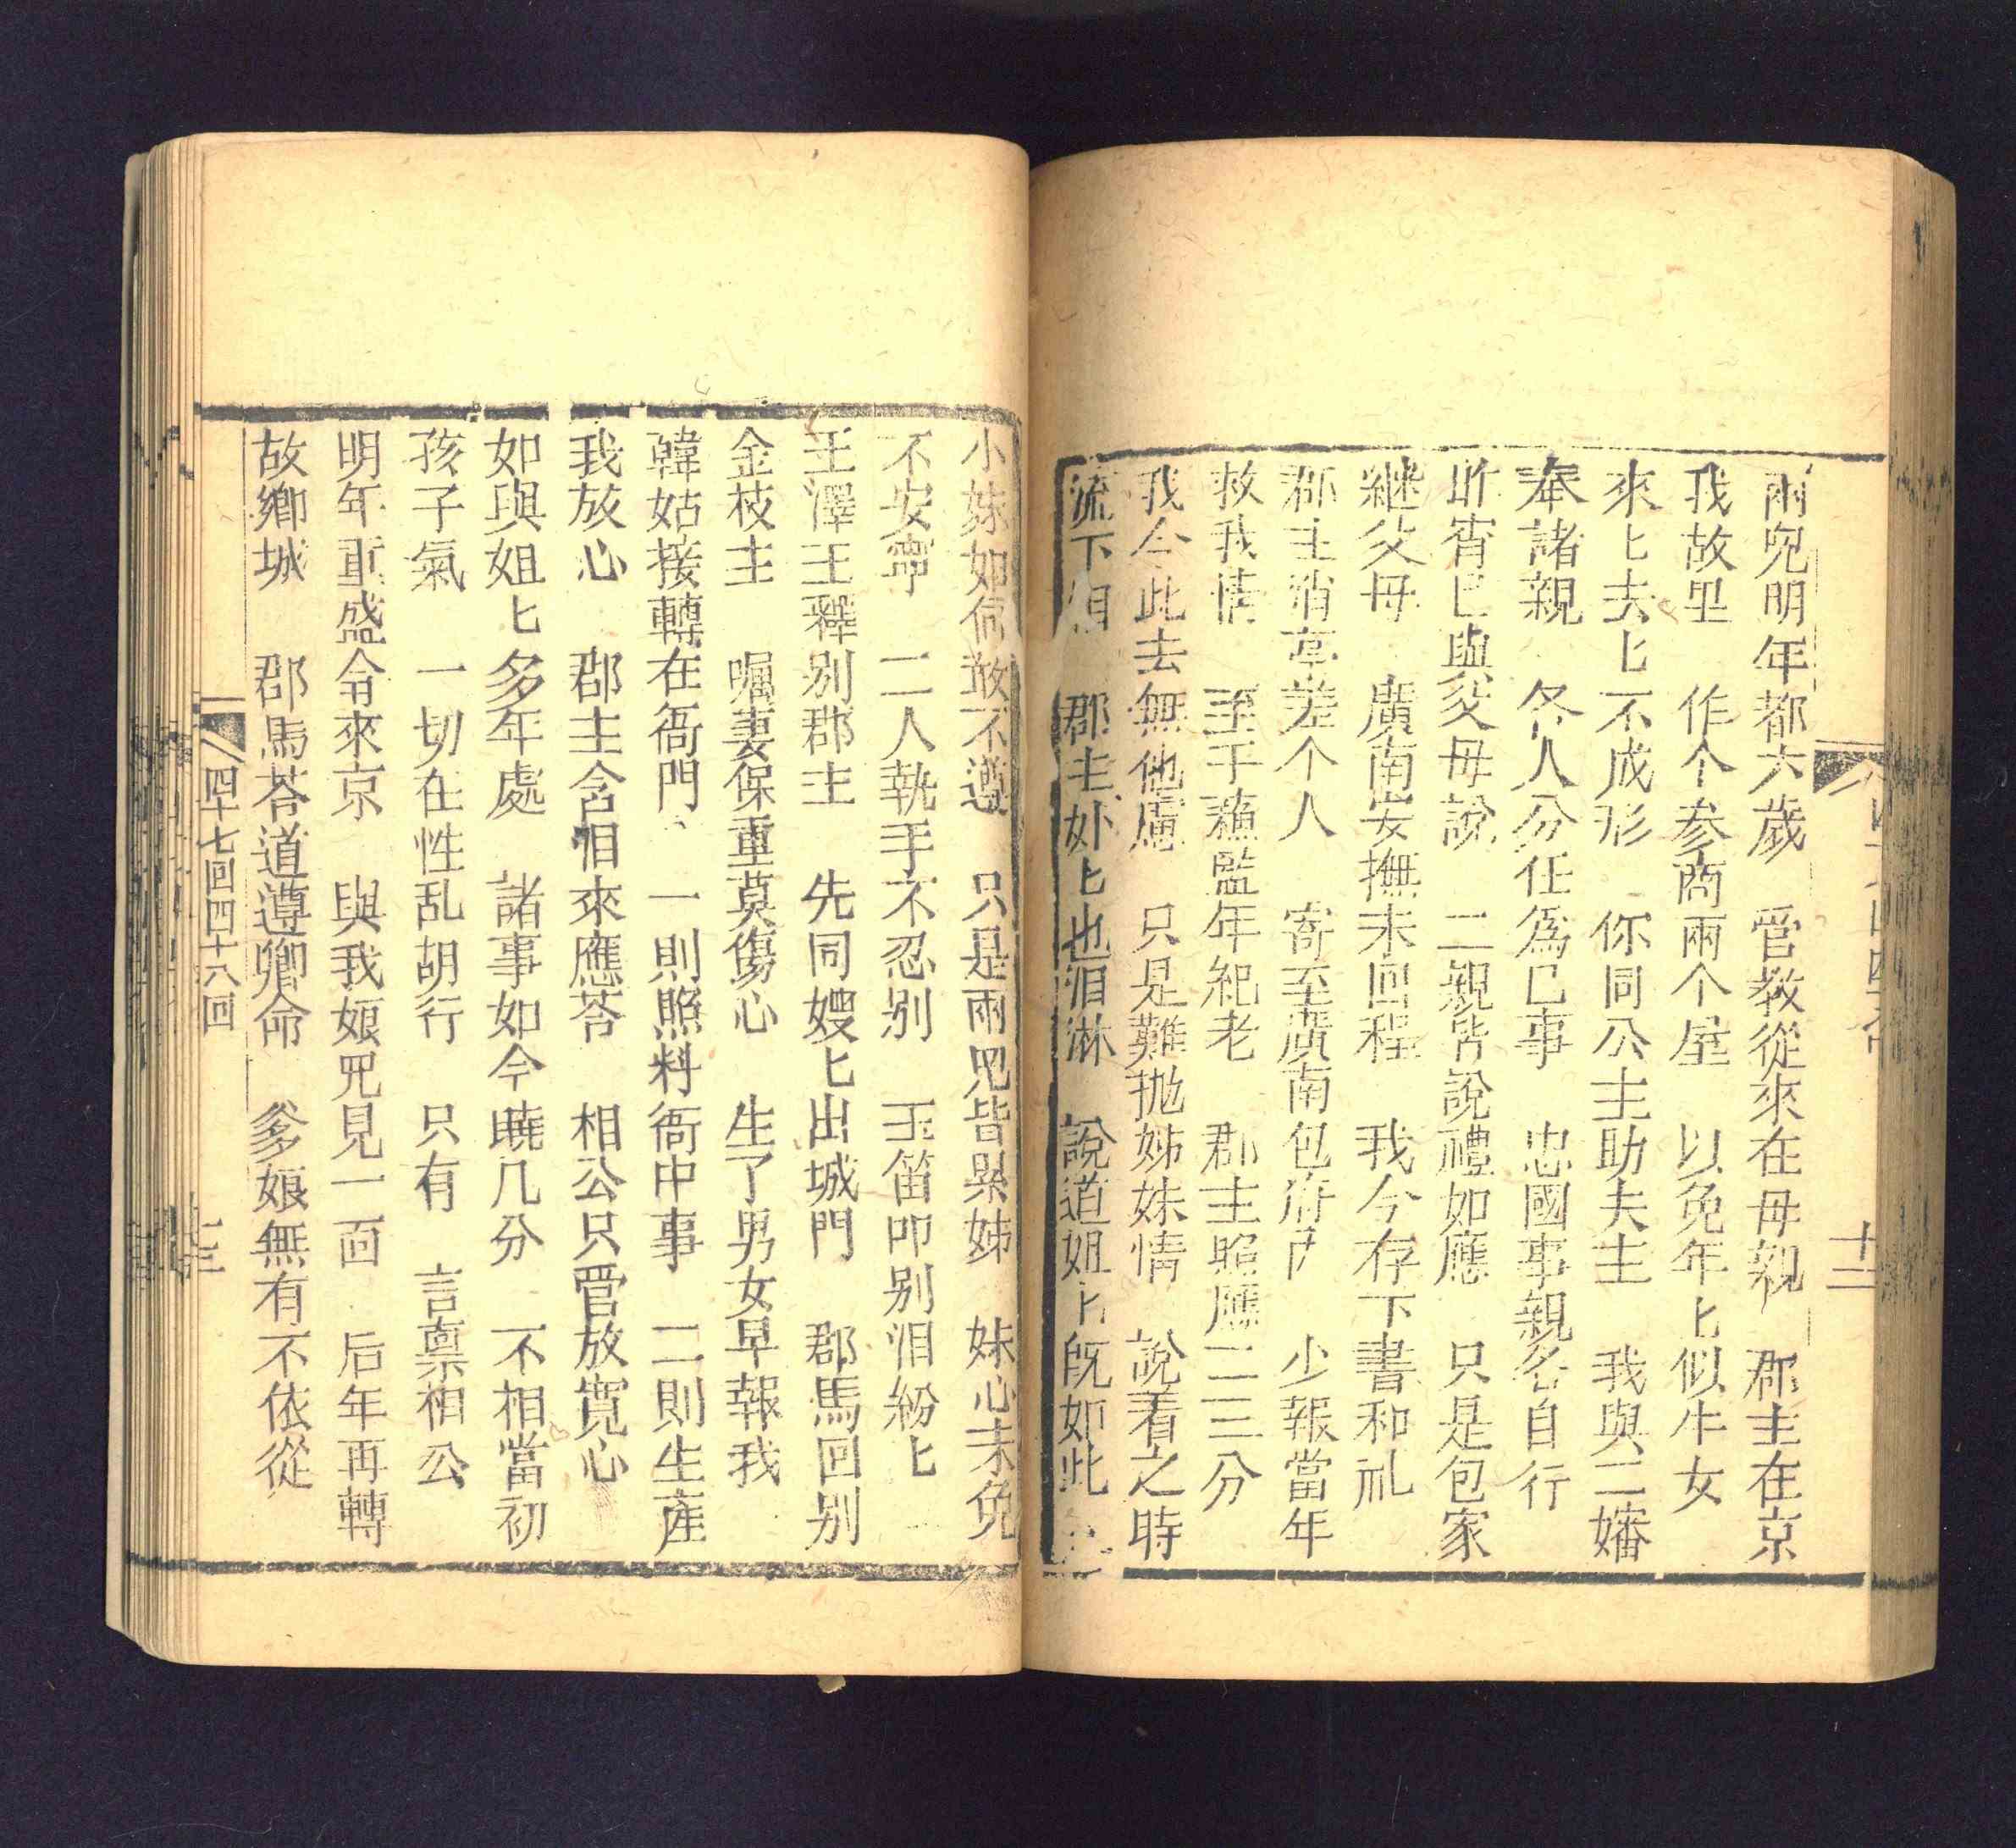 兩兒明年都六歲　管教從來在母親　郡主在京
我故里　作个参商兩个星　以免年匕似牛女
來匕去匕不成形　你同公主助夫主　我與二嬸
奉諸親　各人分任為已事　忠國事親各自行
昨宵已與父母說　二親皆說禮如應　只是包家
継父母　廣南安撫未回程　我今存下書和礼
郡主消亭差个人　寄至廣南包府門　少報當年
救我情　至于蕴監年紀老　郡主照應二三分
我今此去無他慮　只是難抛姊妹情　說着之時
流下泪　郡主妙匕也泪淋　說道姐匕既如此
小妹如何敢不遵　只是兩児皆累姊　妹心未免
不安寧　二人執手不忍别　玉笛叩别泪紛匕
王澤王釋别郡主　先同嫂匕出城門　郡馬回别
金枝主　嘱妻保重莫傷心　生了男女早報我
韓姑接轉在衙門　一則照料衙中事　二則生産
我放心　郡主含泪來應荅　相公只管放寬心
如與姐匕多年處　諸事如今曉几分　不相當初
孩子氣　一切在性乱胡行　只有　言禀相公
明年重盛令來京　與我娘児見一面　后年再轉
故鄉城　郡馬荅道遵卿命　爹娘無有不依從
四十七回四十八回
十二